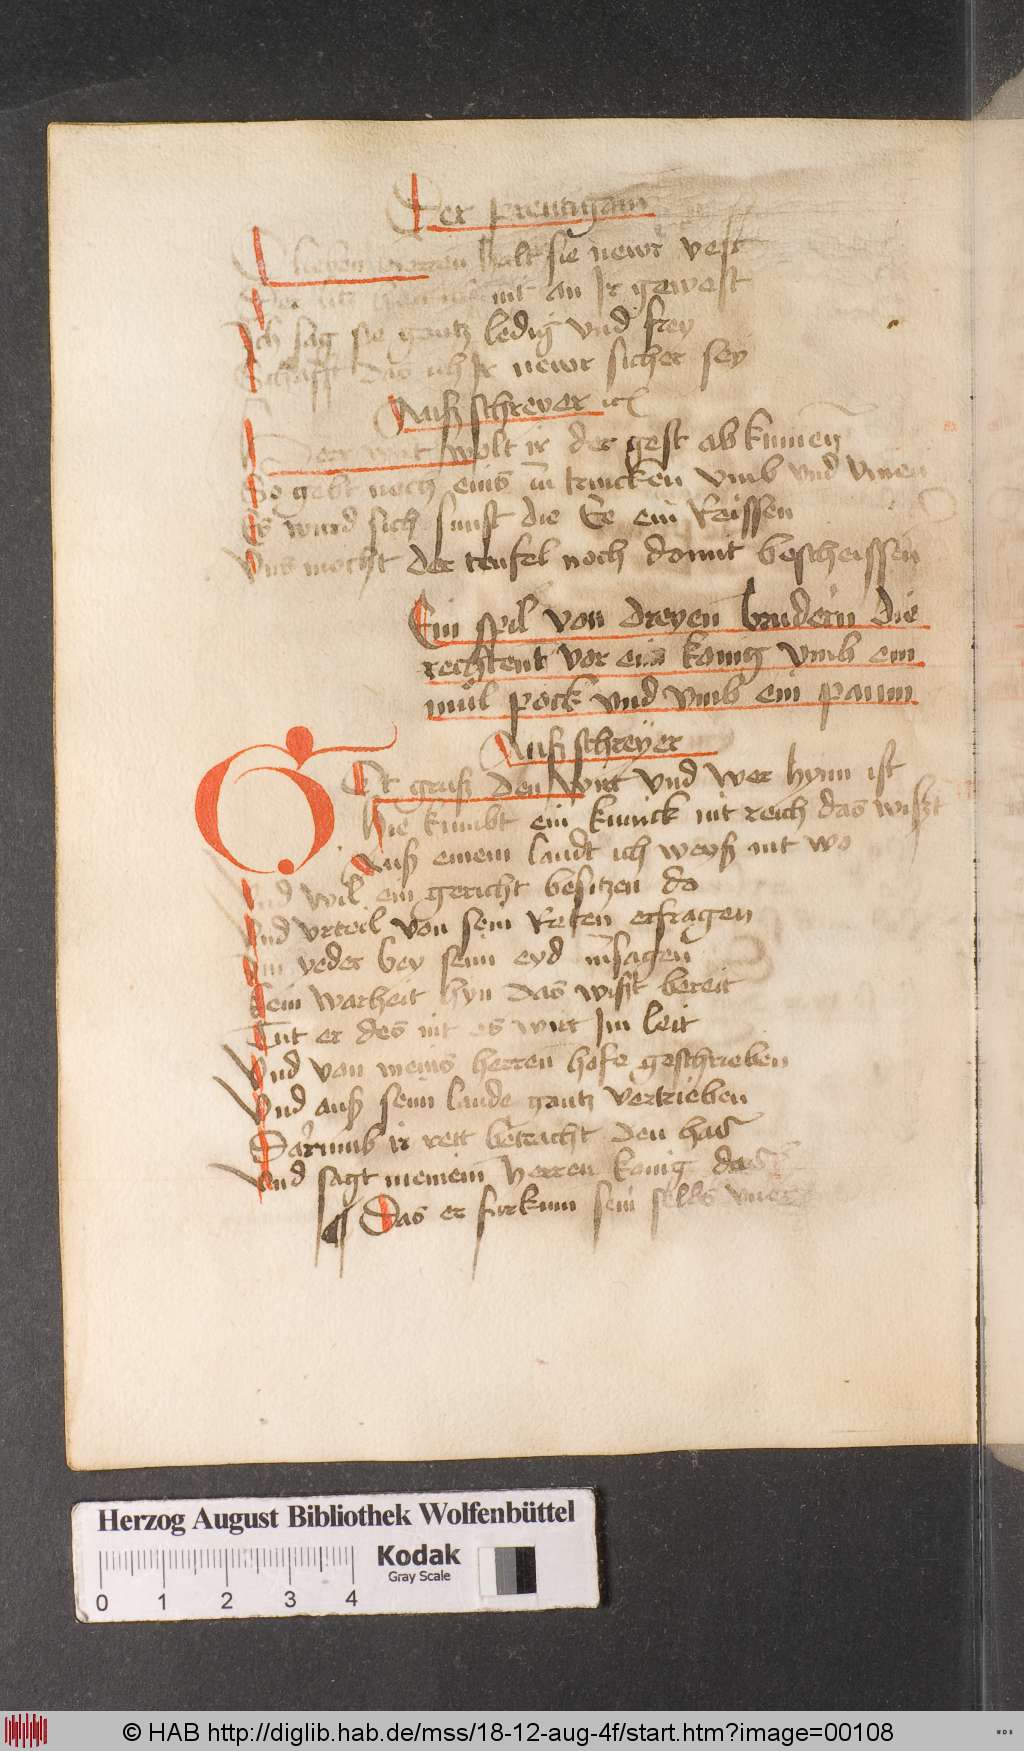 Der preutigam
lieben herren halt sie newr vest
nit an Ir gewest
Ich sag sie gantz ledig vnd frey
Schafft das ich Ir newr sicher sey
Außschreyer
Herr wirt wolt ir der gest abkumen
So gebt noch eins zu trincken vmb vnd vmen
Es wurd sich sunst die Ee ein Reissen
Vns mocht der teufel noch domit bescheissen
Ein spil von dreyen brudern die
rechtent vor eim konig vmb ein
mul pock vnd vmb ein paum
Außschreyer
GOt gruß den wirt vnd wer hynn ist
Hie kumbt ein kunick nit reich das wißt
Auß einem landt ich weyß nit wo
Vnd wil ein gericht besitzen do
Vnd vrteil von sein Reten erfragen
Im yeder bey seim eyd zusagen
Kein warheit hyn das wißt bereit
Tut er des nit es wirt Im leit
Vnd von meins herren hofe geschrieben
Vnd auß seim lande gantz vertrieben
Darumb ir rett betracht den has
Vnd sagt meinem herren konig das
Das er furkum sein selbs
Herzog August Bibliothek Wolfenbüttel
Kodak
Gray Scale
0 1 2 3 4
© HAB http://diglib.hab.de/mss/18-12-aug-4f/start.htm?image=00108